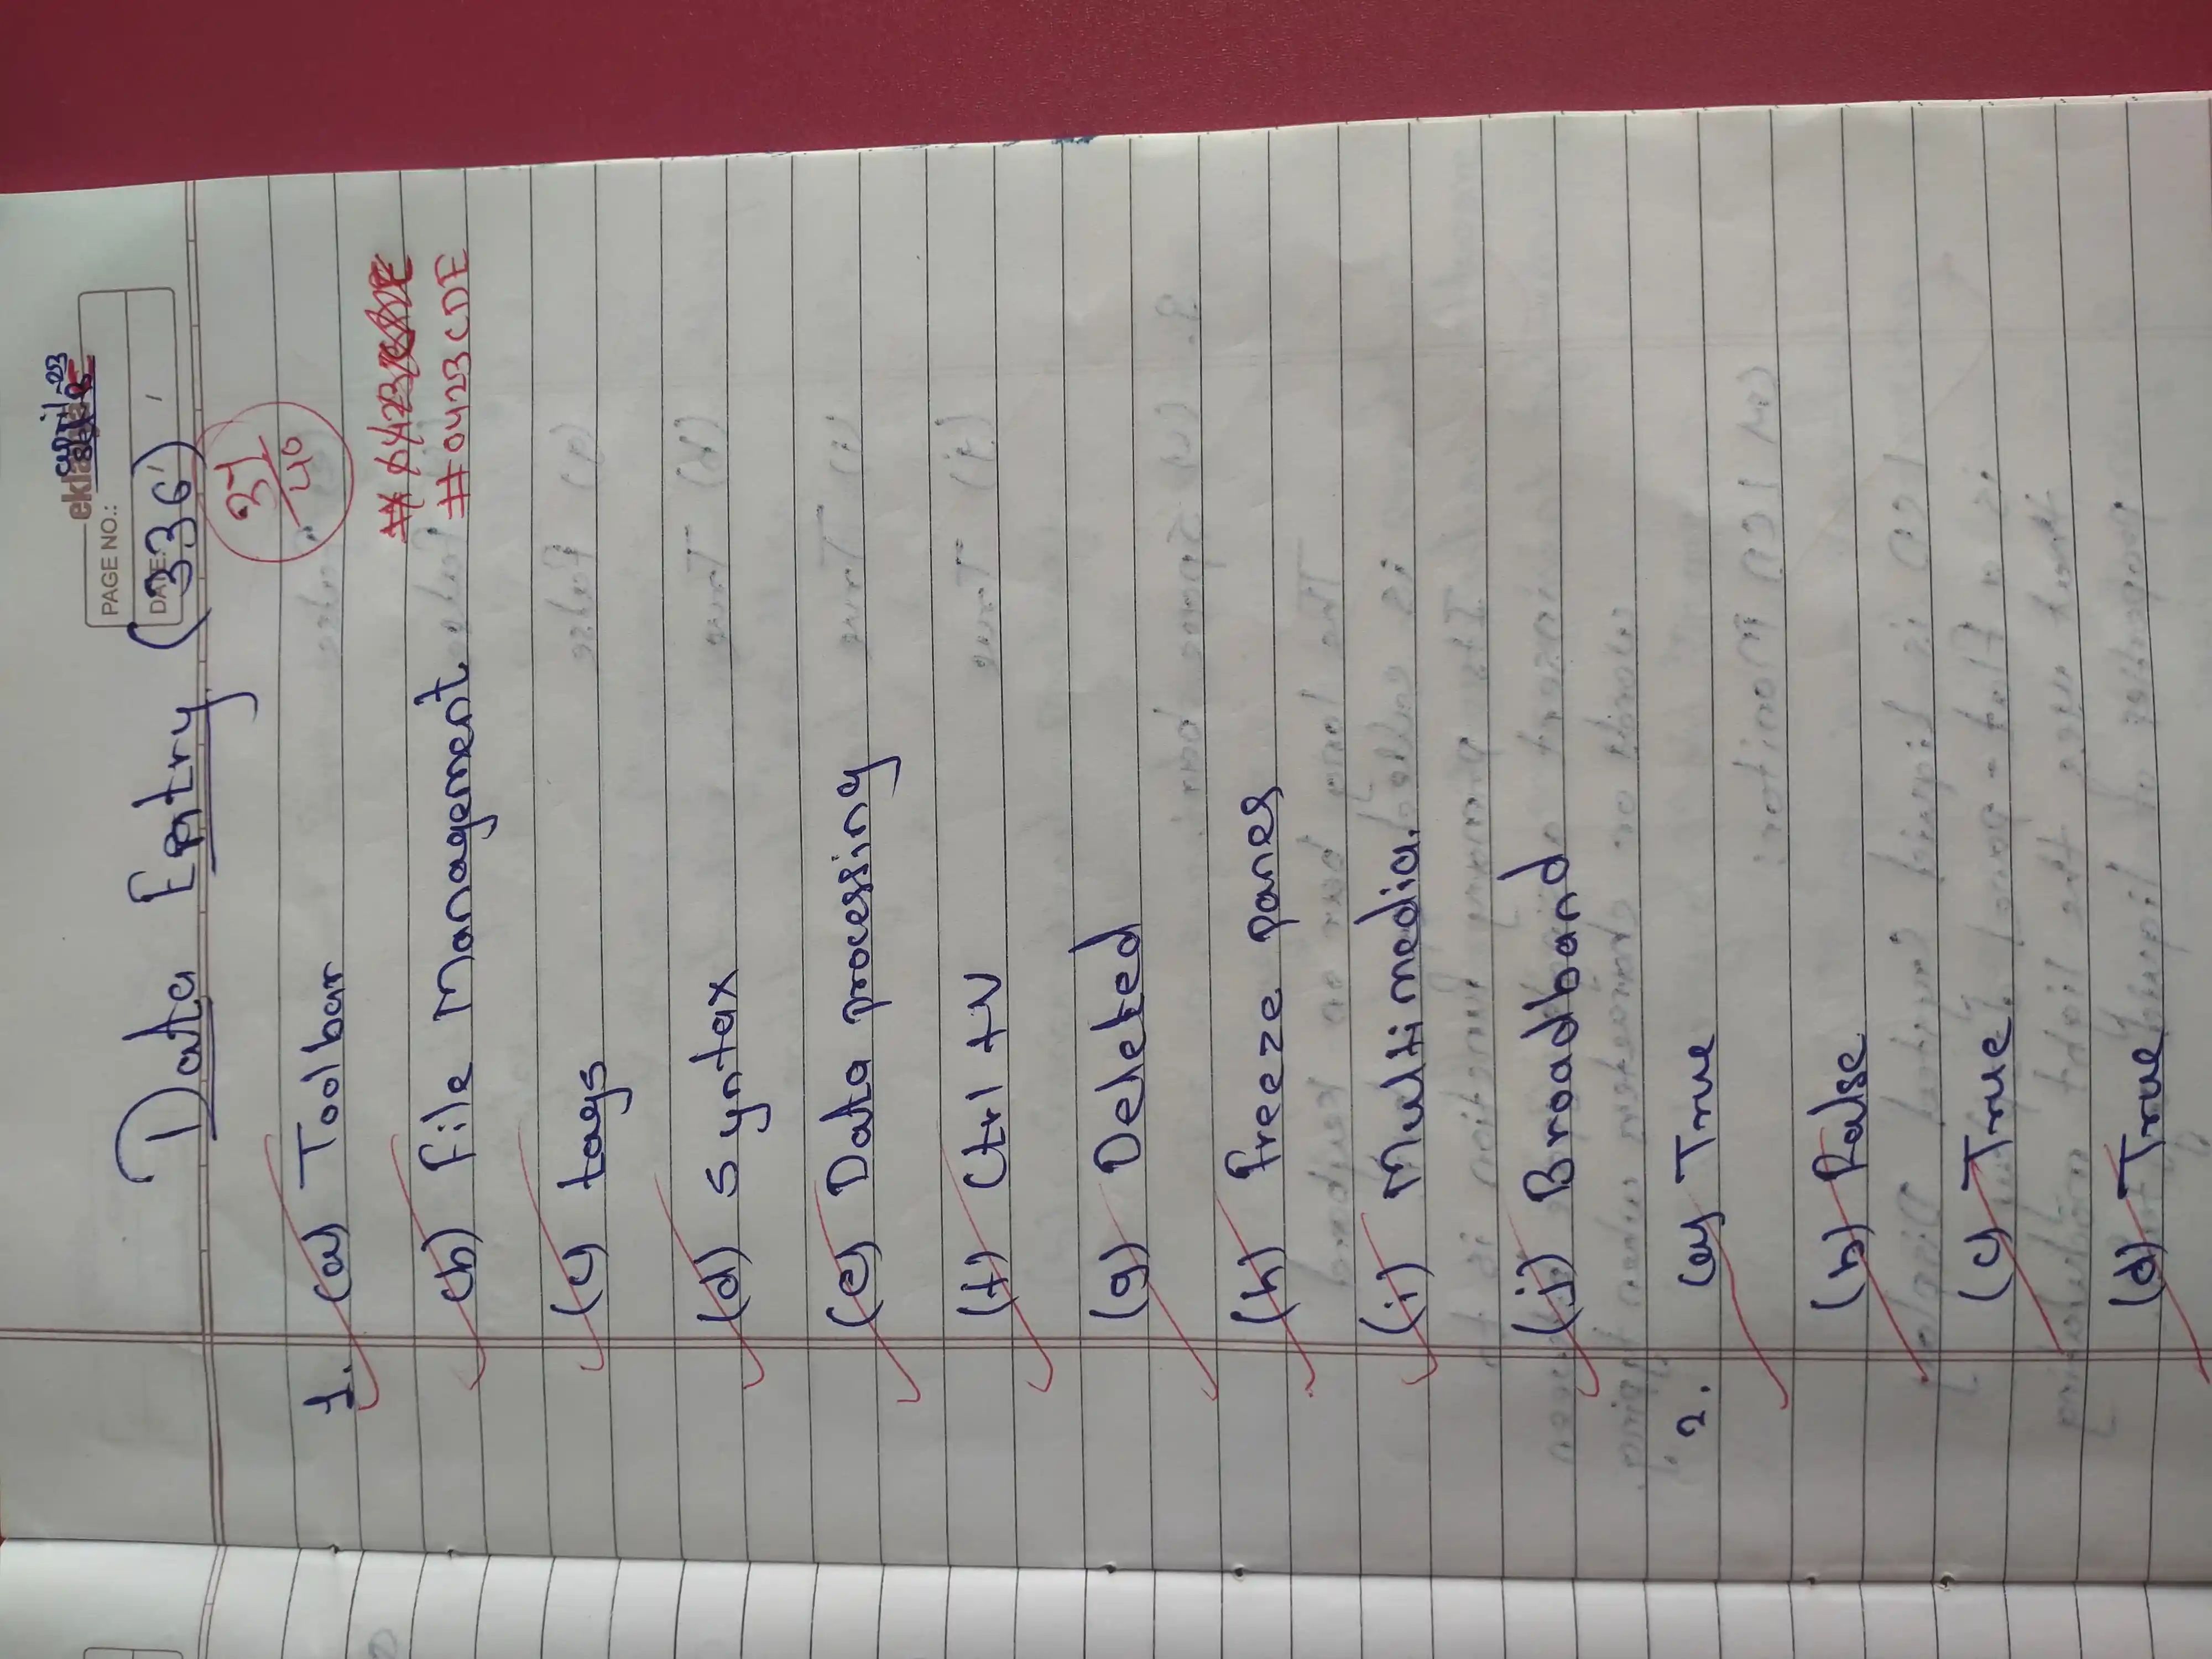 april-23
PAGE NO.:
DATE:
Data Entry (336)
37/40
1. (a) Toolbar
#0423CDE
(b) File Management
(c) tags
(d) syntax
(e) Data processing
(f) Ctrl +V
(g) Deleted
(h) freeze panes
(i) Multimedia.
(j) Broadband
2. (a) True
(b) False
(c) True
(d) True